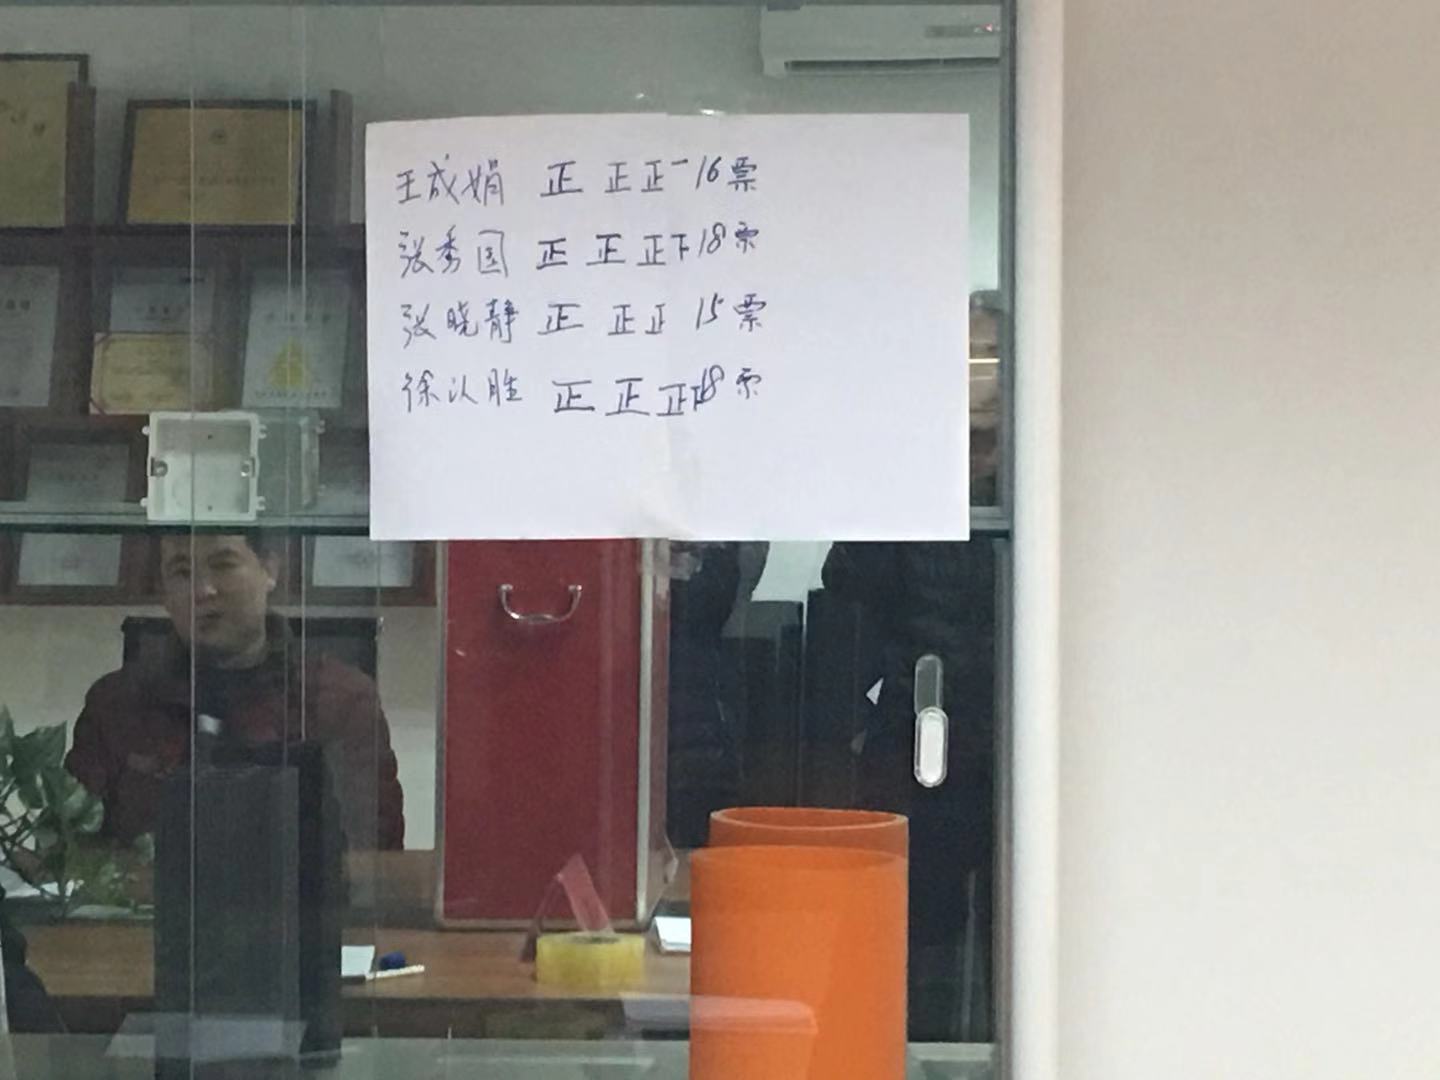 王成娟 正 正正一16票
张秀国 正 正 正下18票
张晓静 正 正正 15票
徐以胜 正 正 正下18票